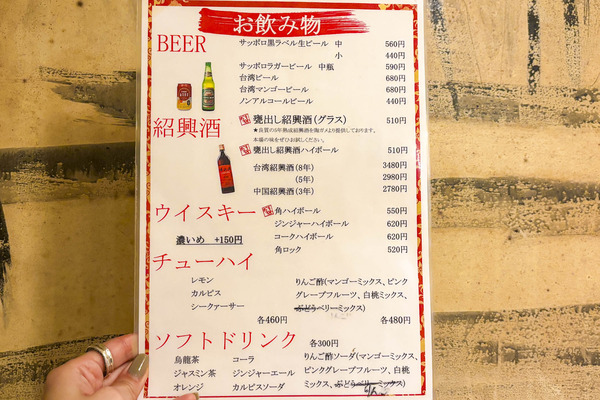 お飲み物
BEER
サッポロ黒ラベル生ビール 中 560円
小 440円
サッポロラガービール 中瓶 590円
台湾ビール 680円
台湾マンゴービール 680円
ノンアルコールビール 440円
紹興酒
甕出し紹興酒(グラス) 510円
★良質の5年熟成紹興酒を陶ガメより提供しております。
本場の味をぜひお試しください。
甕出し紹興酒ハイボール 510円
台湾紹興酒(8年) 3480円
(5年) 2980円
中国紹興酒(3年) 2780円
ウイスキー
角ハイボール 550円
ジンジャーハイボール 620円
濃いめ +150円
コークハイボール 620円
角ロック 520円
チューハイ
レモン
カルピス
シークァーサー
各460円
りんご酢(マンゴーミックス、ピンク
グレープフルーツ、白桃ミックス、
ぶどうベリーミックス)
各480円
ソフトドリンク 各300円
烏龍茶 コーラ
ジャスミン茶 ジンジャーエール
オレンジ カルピスソーダ
りんご酢ソーダ(マンゴーミックス、
ピンクグレープフルーツ、白桃
ミックス、ぶどうベリーミックス)